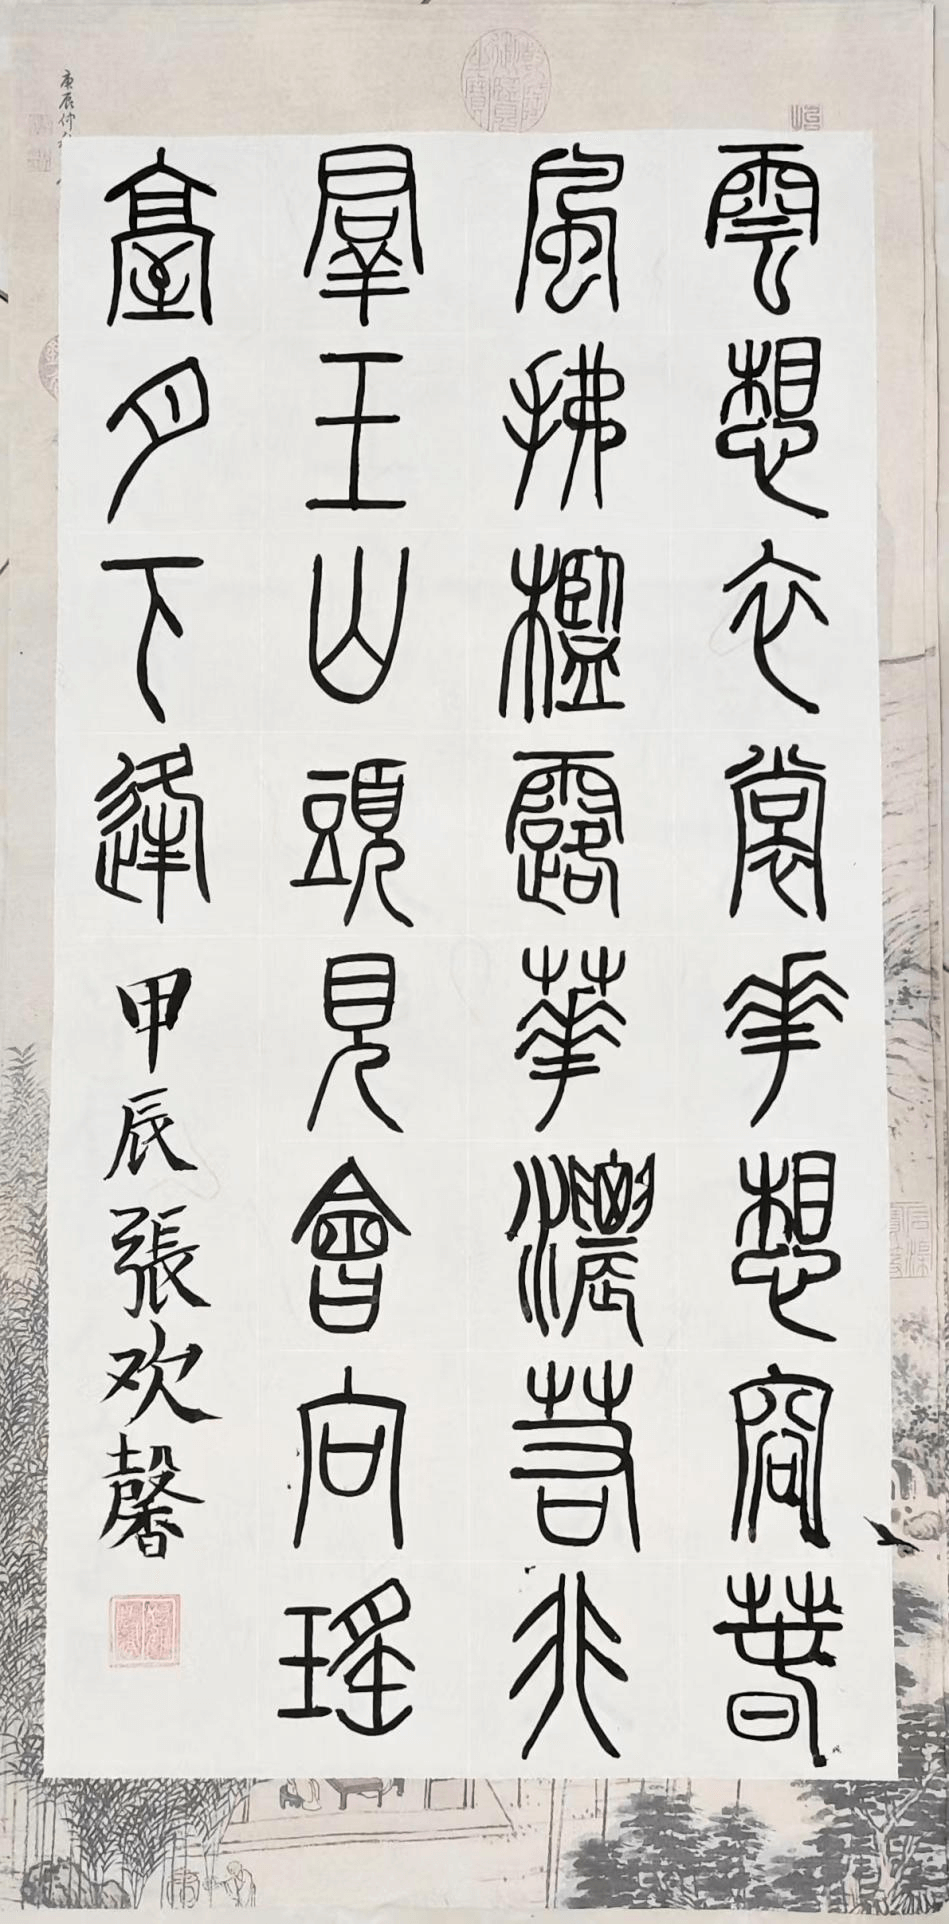 雲想衣裳華想容春
風拂檻露華濃若非
羣玉山頭見會向瑤
臺月下逢 甲辰 張欢馨
庚辰仲